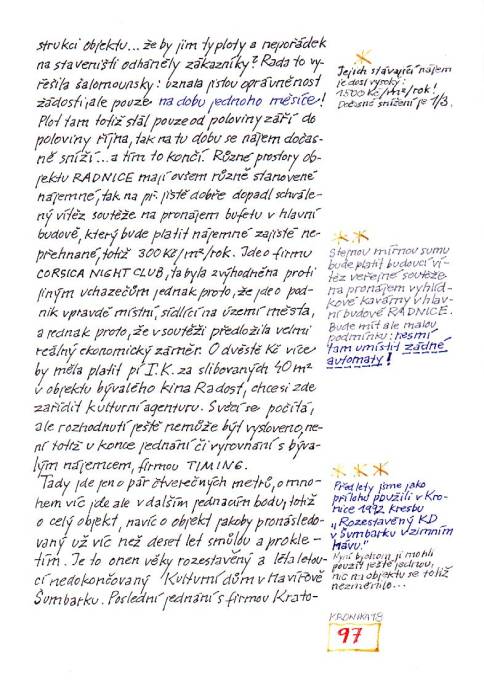 strukci objektu... že by jim ty ploty a nepořádek
na staveništi odháněly zákazníky? Rada to vy-
řešila šalomounsky: uznala jistou oprávněnost
žádosti, ale pouze na dobu jednoho měsíce!
Plot tam totiž stál pouze od poloviny září do
poloviny října, tak na tu dobu se nájem dočas-
ně sníží... a tím to končí. Různé prostory ob-
jektu RADNICE mají ovšem různě stanovené
nájemné, tak na př. jistě dobře dopadl schvále-
ný vítěz soutěže na pronájem bufetu v hlavní
budově, který bude platit nájemné zajisté ne-
přehnané, totiž 300 Kč/m²/rok. Jde o firmu
CORSICA NIGHT CLUB, ta byla zvýhodněna proti
jiným uchazečům jednak proto, že jde o pod-
nik vpravdě místní, sídlící na území města,
a jednak proto, že v soutěži předložila velmi
reálný ekonomický záměr. O dvěstě Kč více
by měla platit pí I.K. za slibovaných 40 m²
v objektu bývalého kina Radost, chce si zde
zařídit kulturní agenturu. S věcí se počítá,
ale rozhodnutí ještě nemůže být vysloveno, ne-
ní totiž u konce jednání či vyrovnání s býva-
lým nájemcem, firmou TIMING.
Tady jde jen o pár čtverečných metrů, o mno-
hem víc jde ale v dalším jednacím bodu, totiž
o celý objekt, navíc o objekt jakoby pronásledo-
vaný už víc než deset let smůlou a prokle-
tím. Je to onen věky rozestavěný a léta letou-
cí nedokončovaný Kulturní dům v Havířově
Šumbarku. Poslední jednání s firmou Krato-
*
Jejich stávající nájem
je dost vysoký:
1500 Kč/m²/rok!
Dočasné snížení je 1/3.
**
Stejnou mírnou sumu
bude platit budoucí ví-
těz veřejné soutěže
na pronájem vyhlíd-
kové kavárny v hlav-
ní budově RADNICE.
Bude mít ale malou
podmínku: nesmí
tam umístit žádné
automaty!
***
Před lety jsme jako
přílohu použili v Kro-
nice 1992 kresbu
„Rozestavěný KD
v Šumbarku v zimním
hávu."
Nyní bychom ji mohli
použít ještě jednou,
nic na objektu se totiž
nezměnilo...
KRONIKA 18
97